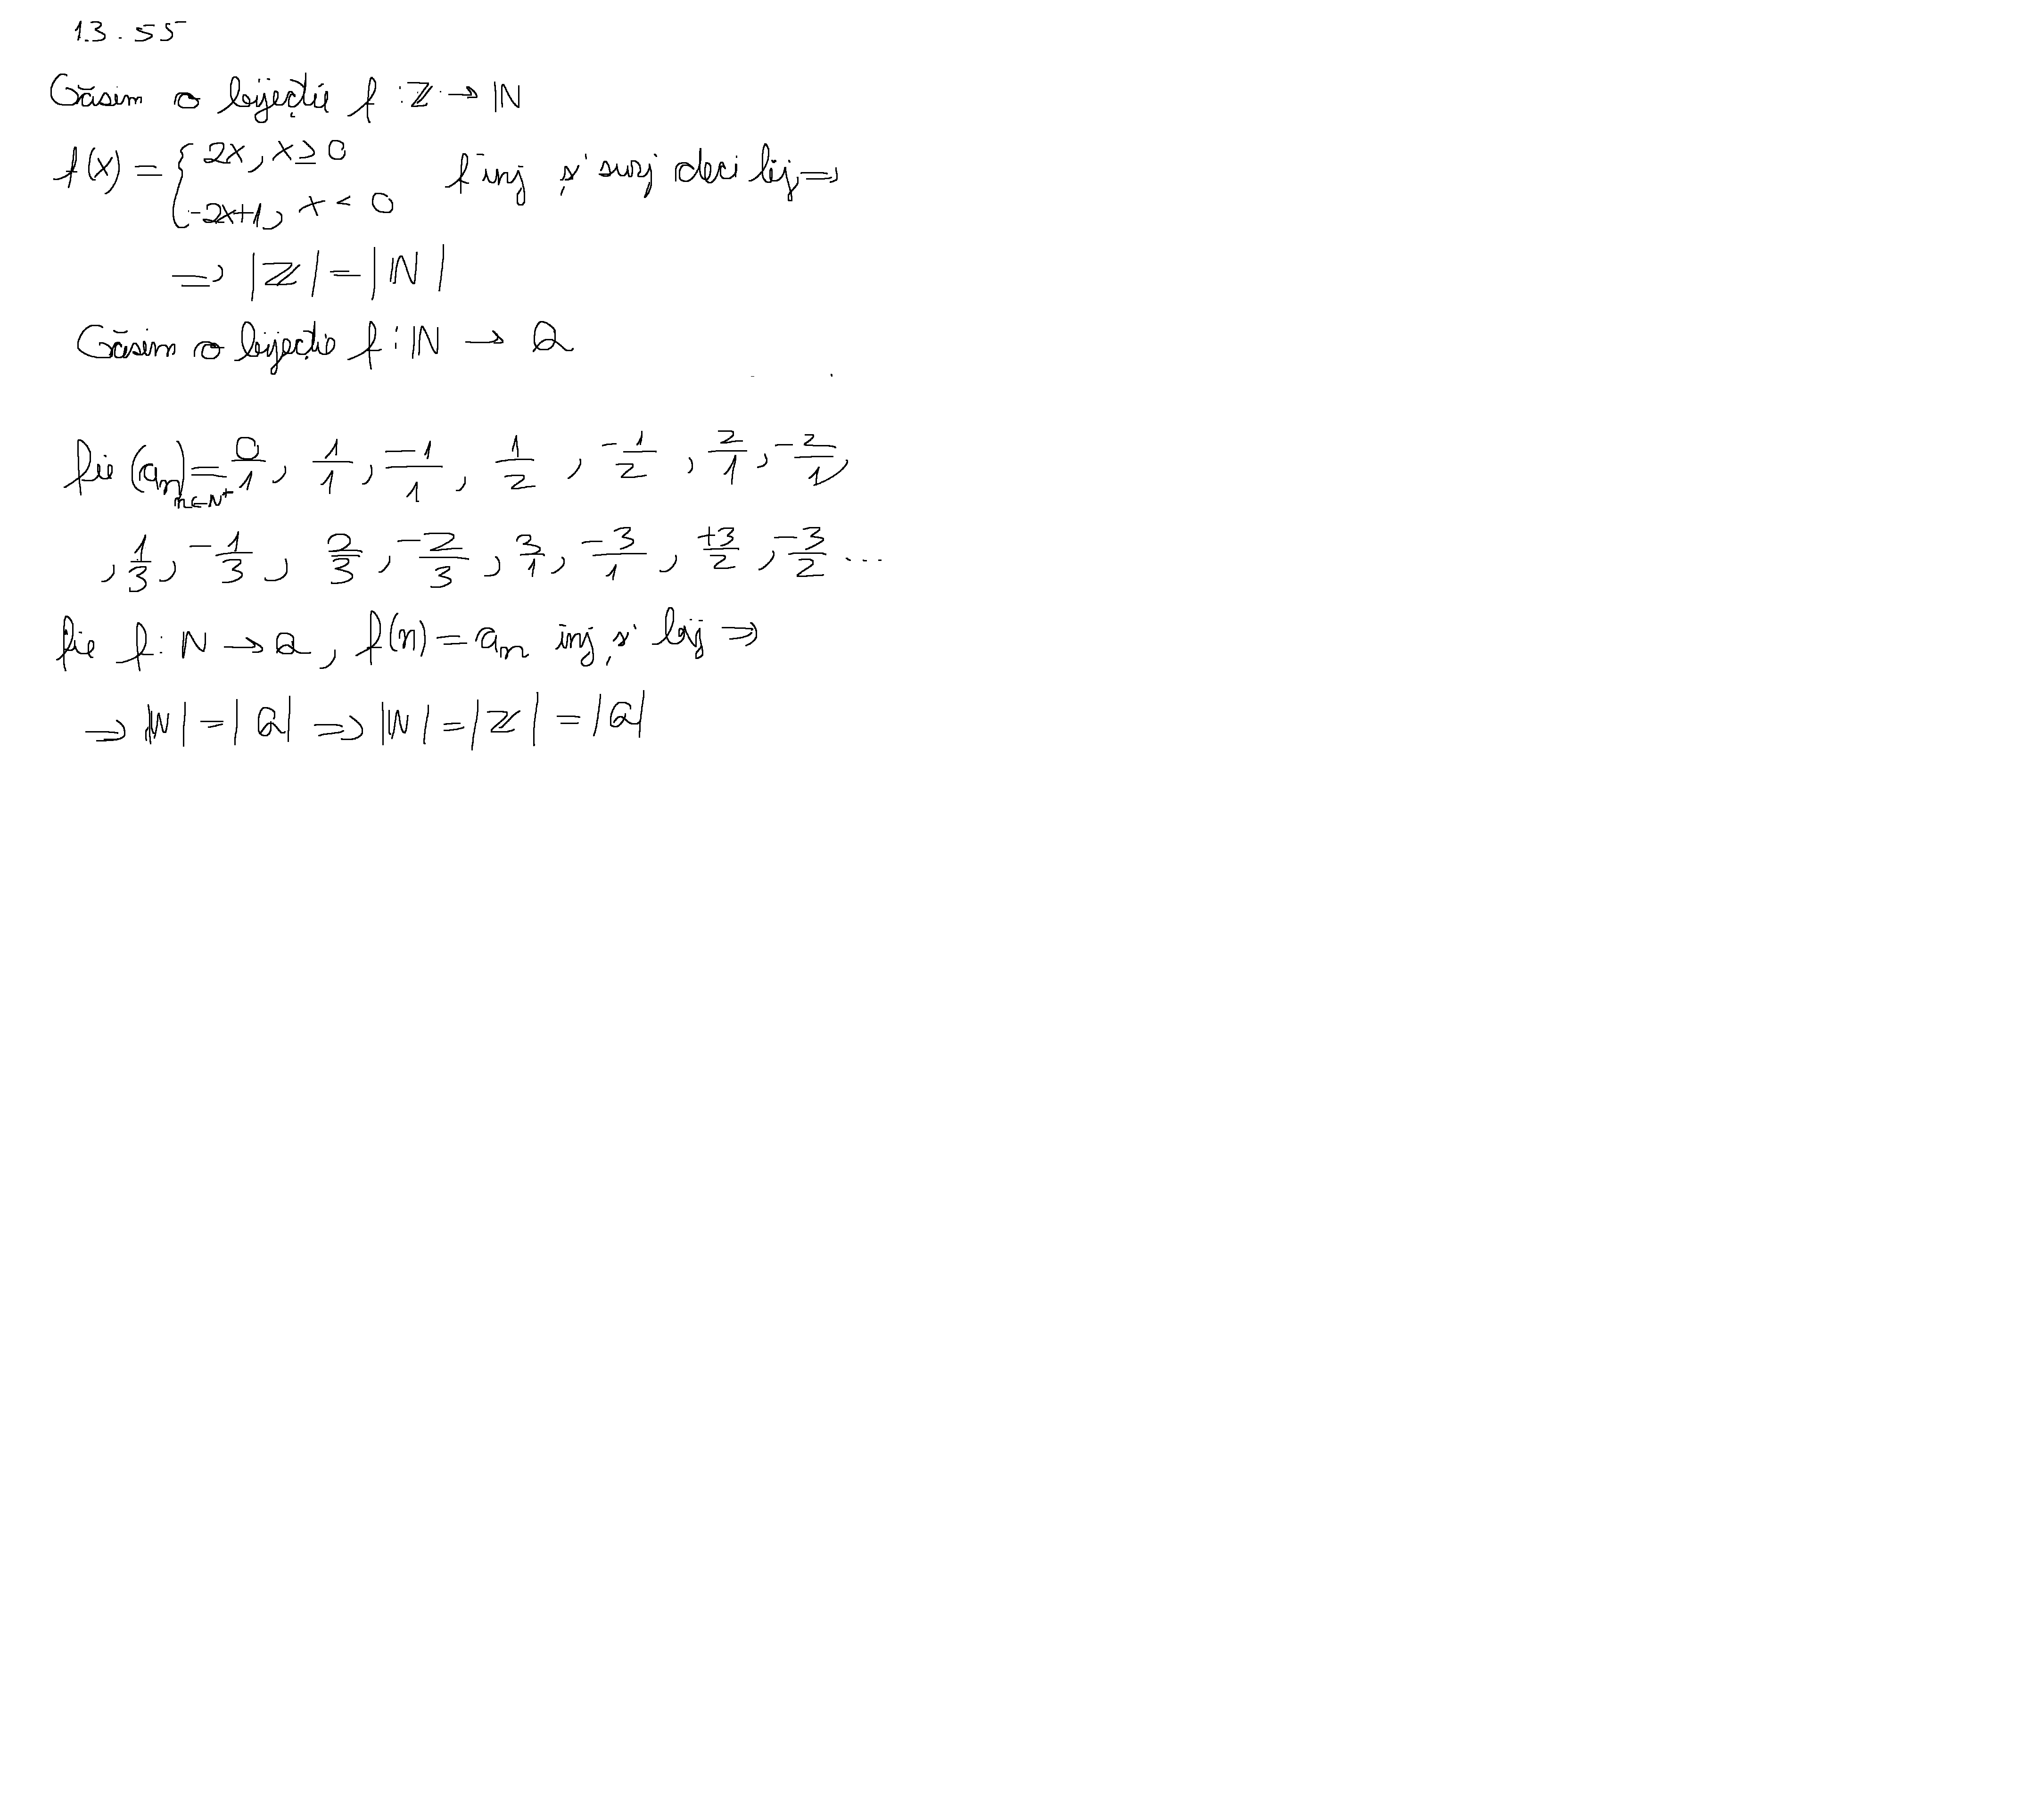 1.3.55
Găsim o bijecție f : ℤ → ℕ
f(x) = { 2x, x ≥ 0
-2x+1, x < 0 f inj și surj deci bij ⇒
⇒ |ℤ| = |ℕ|
Găsim o bijecție f : ℕ → Q
fie (aₙ)n∈N* = 0/1, 1/1, -1/1, 1/2, -1/2, 2/1, -2/1,
, 1/3, -1/3, 2/3, -2/3, 3/1, -3/1, +3/2, -3/2 ...
fie f : N → Q, f(n) = aₙ inj și bij ⇒
⇒ |ℕ| = |Q| ⇒ |ℕ| = |ℤ| = |Q|